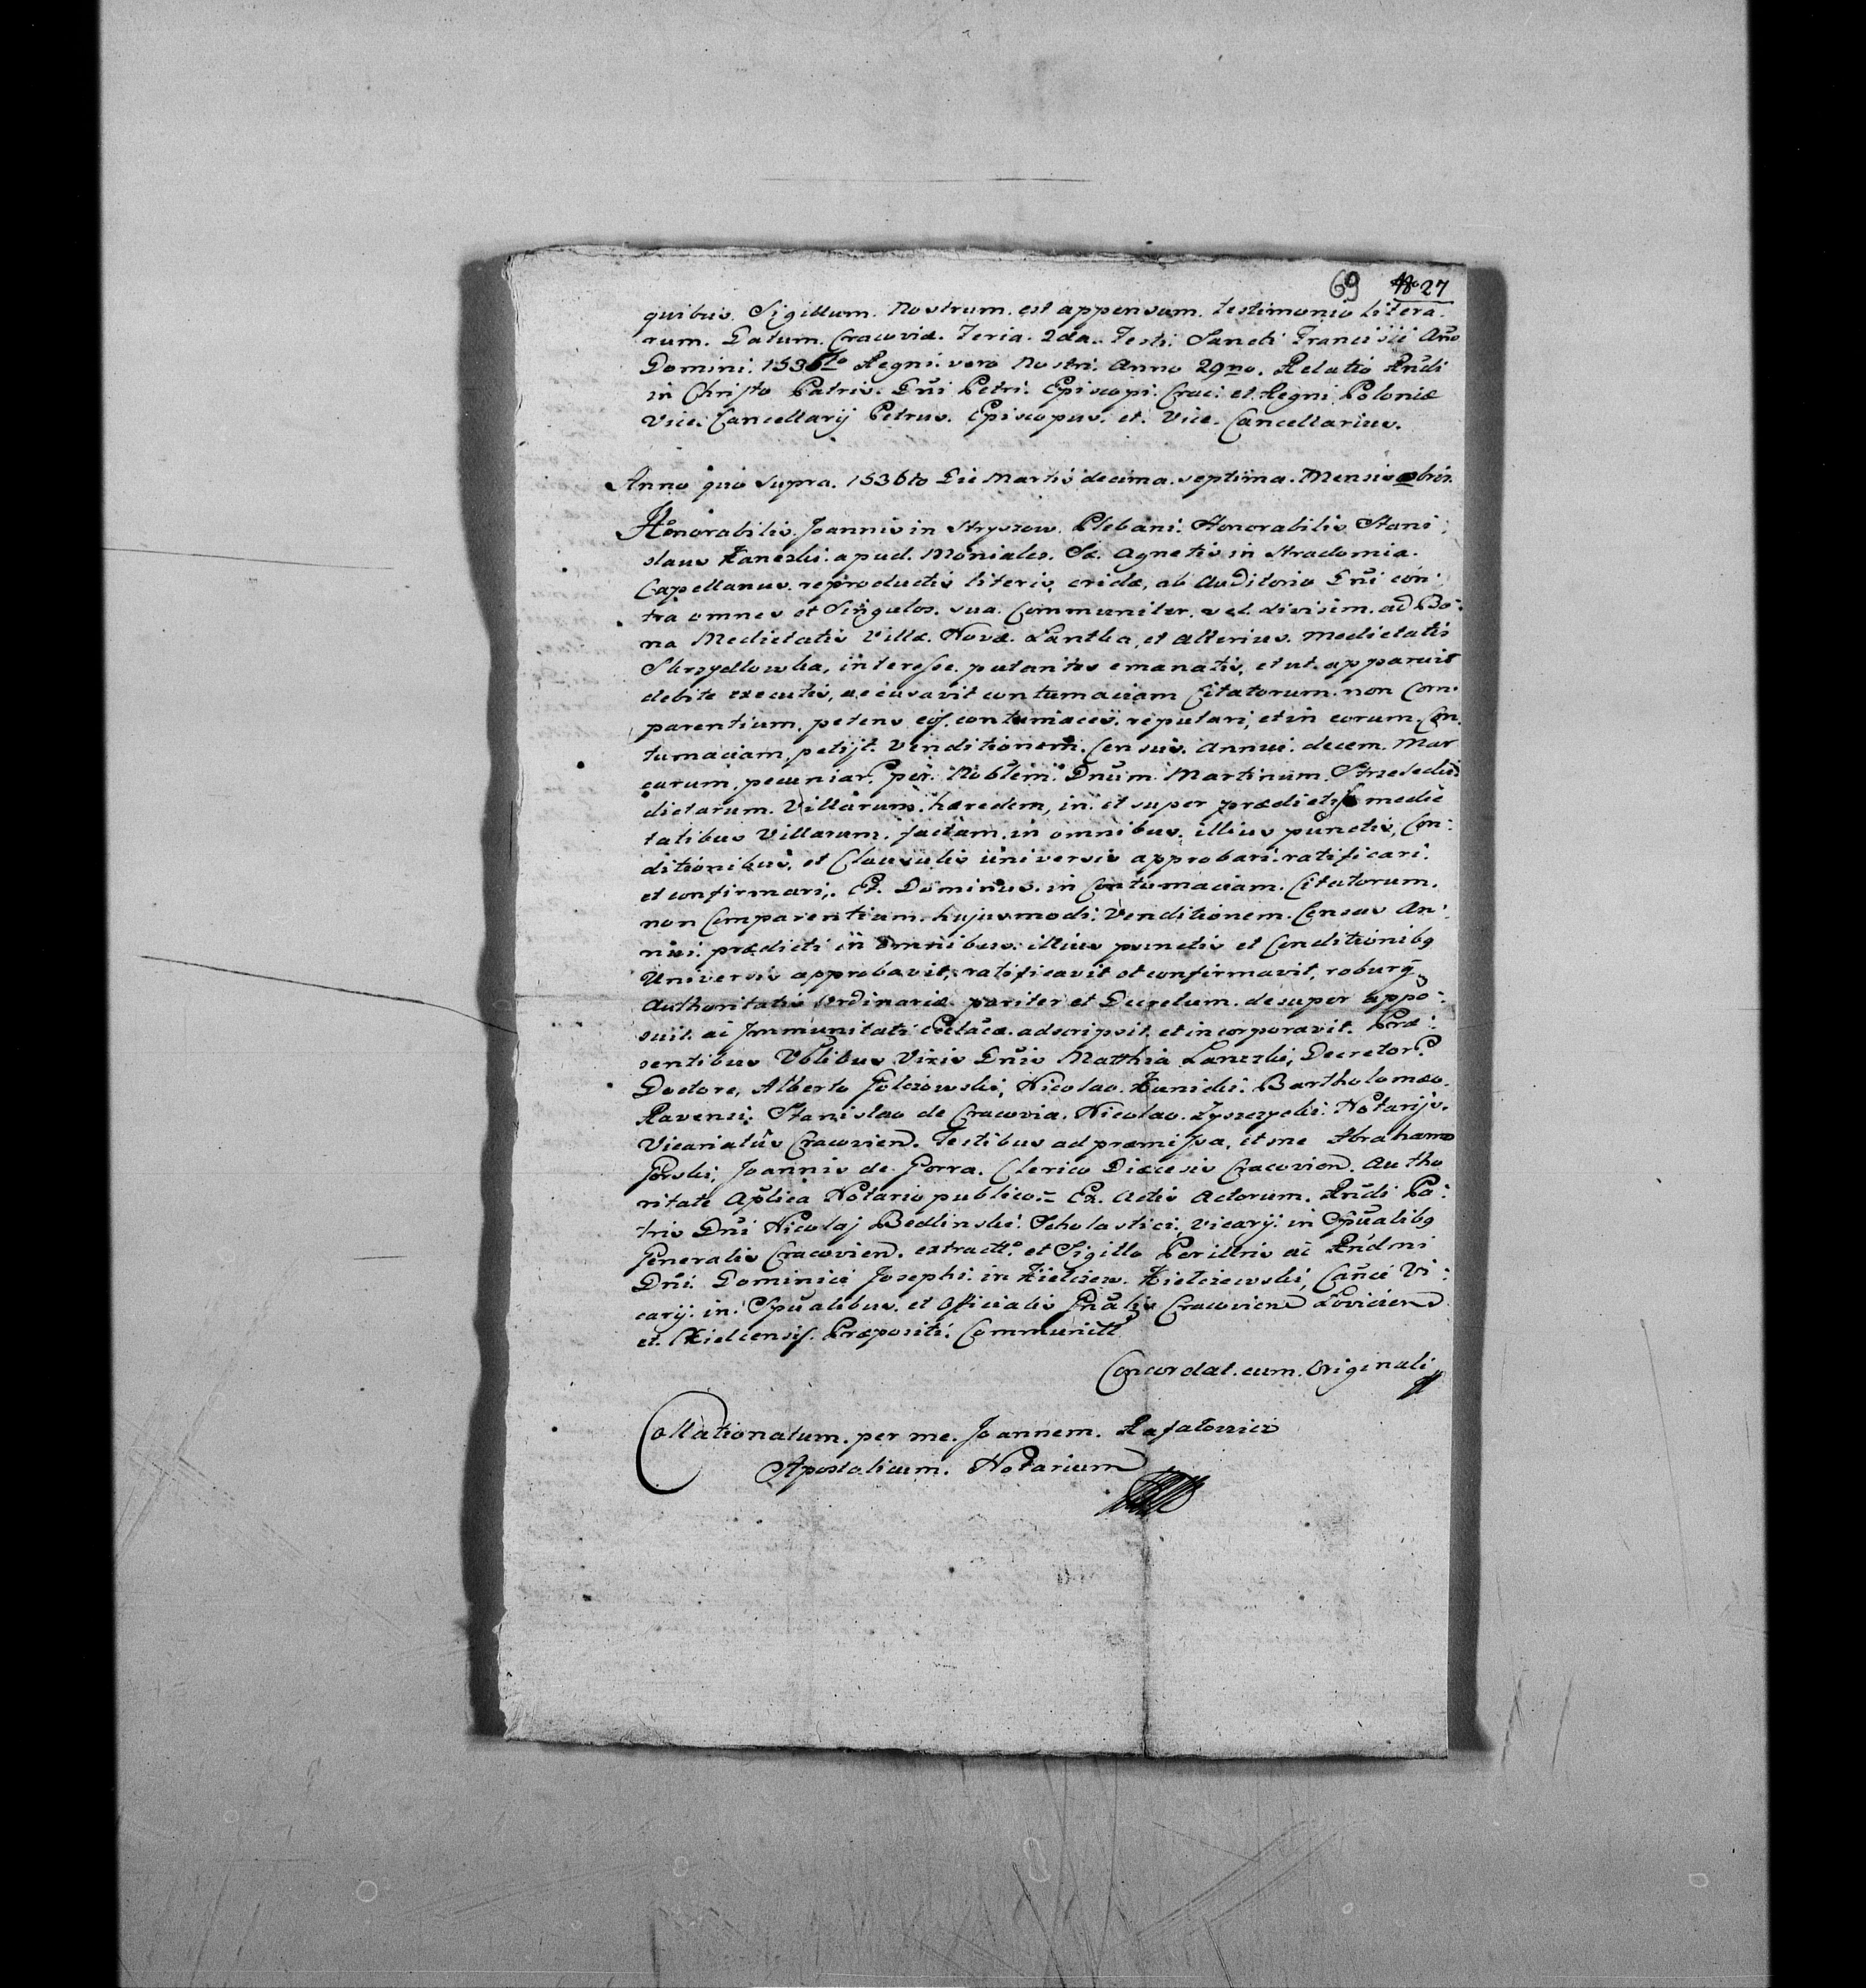 69 No 27
quibus. Sigillum. Nostrum. est appensum. testimonio litera.
rum. Datum. Cracoviæ. Feria. 2da. Festi. Sancti Francisci Año
Domini: 1536to Regni. vero Nostri. Anno 29no. Relatio Rñdi
in Christo Patris. Dñi Petri. Episcopi. Crac: et Regni Poloniæ
Vice. Cancellarij Petrus. Episcopus. et. Vice. Cancellarius.
Anno quo supra. 1536to Die Martis decima. septima. Mensis 8bris.
Honorabilis. Joannis in Stryszow. Plebani. Honorabilis Stani:
slaus apud. Moniales. Sæ. Agnetis in Stradomia.
Capellanus. reproductis literis, cridæ, ab Auditorio Dñi con:
tra omnes et Singulos. sua. Communiter. vel. divisim. ad Bo:
na Medietatis Villæ. Novæ. Łantka, et alterius. medietatis
Skrzydlowka, interesse. putantes emanatis, et ut. apparuit
debite executis, accusavit contumaciam Citatorum. non Com:
parentium, petens eos. contumaces. reputari, et in eorum. Con:
tumaciam, petijt. Venditionem. Census. Annui. decem. Mar
carum, pecuniar. per. Noblem. Dnum Martinum.
dictarum. Villarum, hæredem, in. et super prædictis medie
tatibus Villarum. factam. in omnibus. illius punctis, Con:
ditionibus, et Clausulis universis approbari. ratificari.
et confirmari. Et. Dominus. in Contumaciam. Citatorum.
non Comparentium. hujusmodi. Venditionem. Census An:
nui. prædicti in omnibus. illius punctis et Conditionibq
Universis approbavit, ratificavit et confirmavit, roburq
Authoritatis Ordinariæ pariter et Decretum. desuper appo:
suit. ac Immunitati Ecclacæ. adscripsit. et incorporavit. Præ:
sentibus Vblibus Viris Dñis Matthia Lanczki, Decretor.
Doctore, Alberto Golczowski, Nicolao. Bartholomæo.
Ravensi. Stanislao de Cracovia. Nicolao. Zyszczycki. Notarijs.
Vicariatus Cracovien. Testibus ad præmissa, et me Abrahamo
Gorski, Joannis de Gorra. Clerico Diæcesis Cracovien. Autho
ritate Aplica Notario publico. = Ex. Actis Actorum. Rñdi Pa:
tris Dñi Nicolaj Bedlinski. Scholastici, vicarij. in Spualibq
Generalis Cracovien. extractt. et Sigillo Perillris ac Rndmi
Dñi. Dominici Josephi. in Kielczew. Kielczewski, Canci Vi:
carij. in. Spualibus. et Officialis Gnalis Cracovien Lovicien
et. Kielcensis. Præpositi. Communitt
Concordat. cum. Originali
Collationatum. per me. Joannem. Rafatowicz
Apostolicum. Notarium